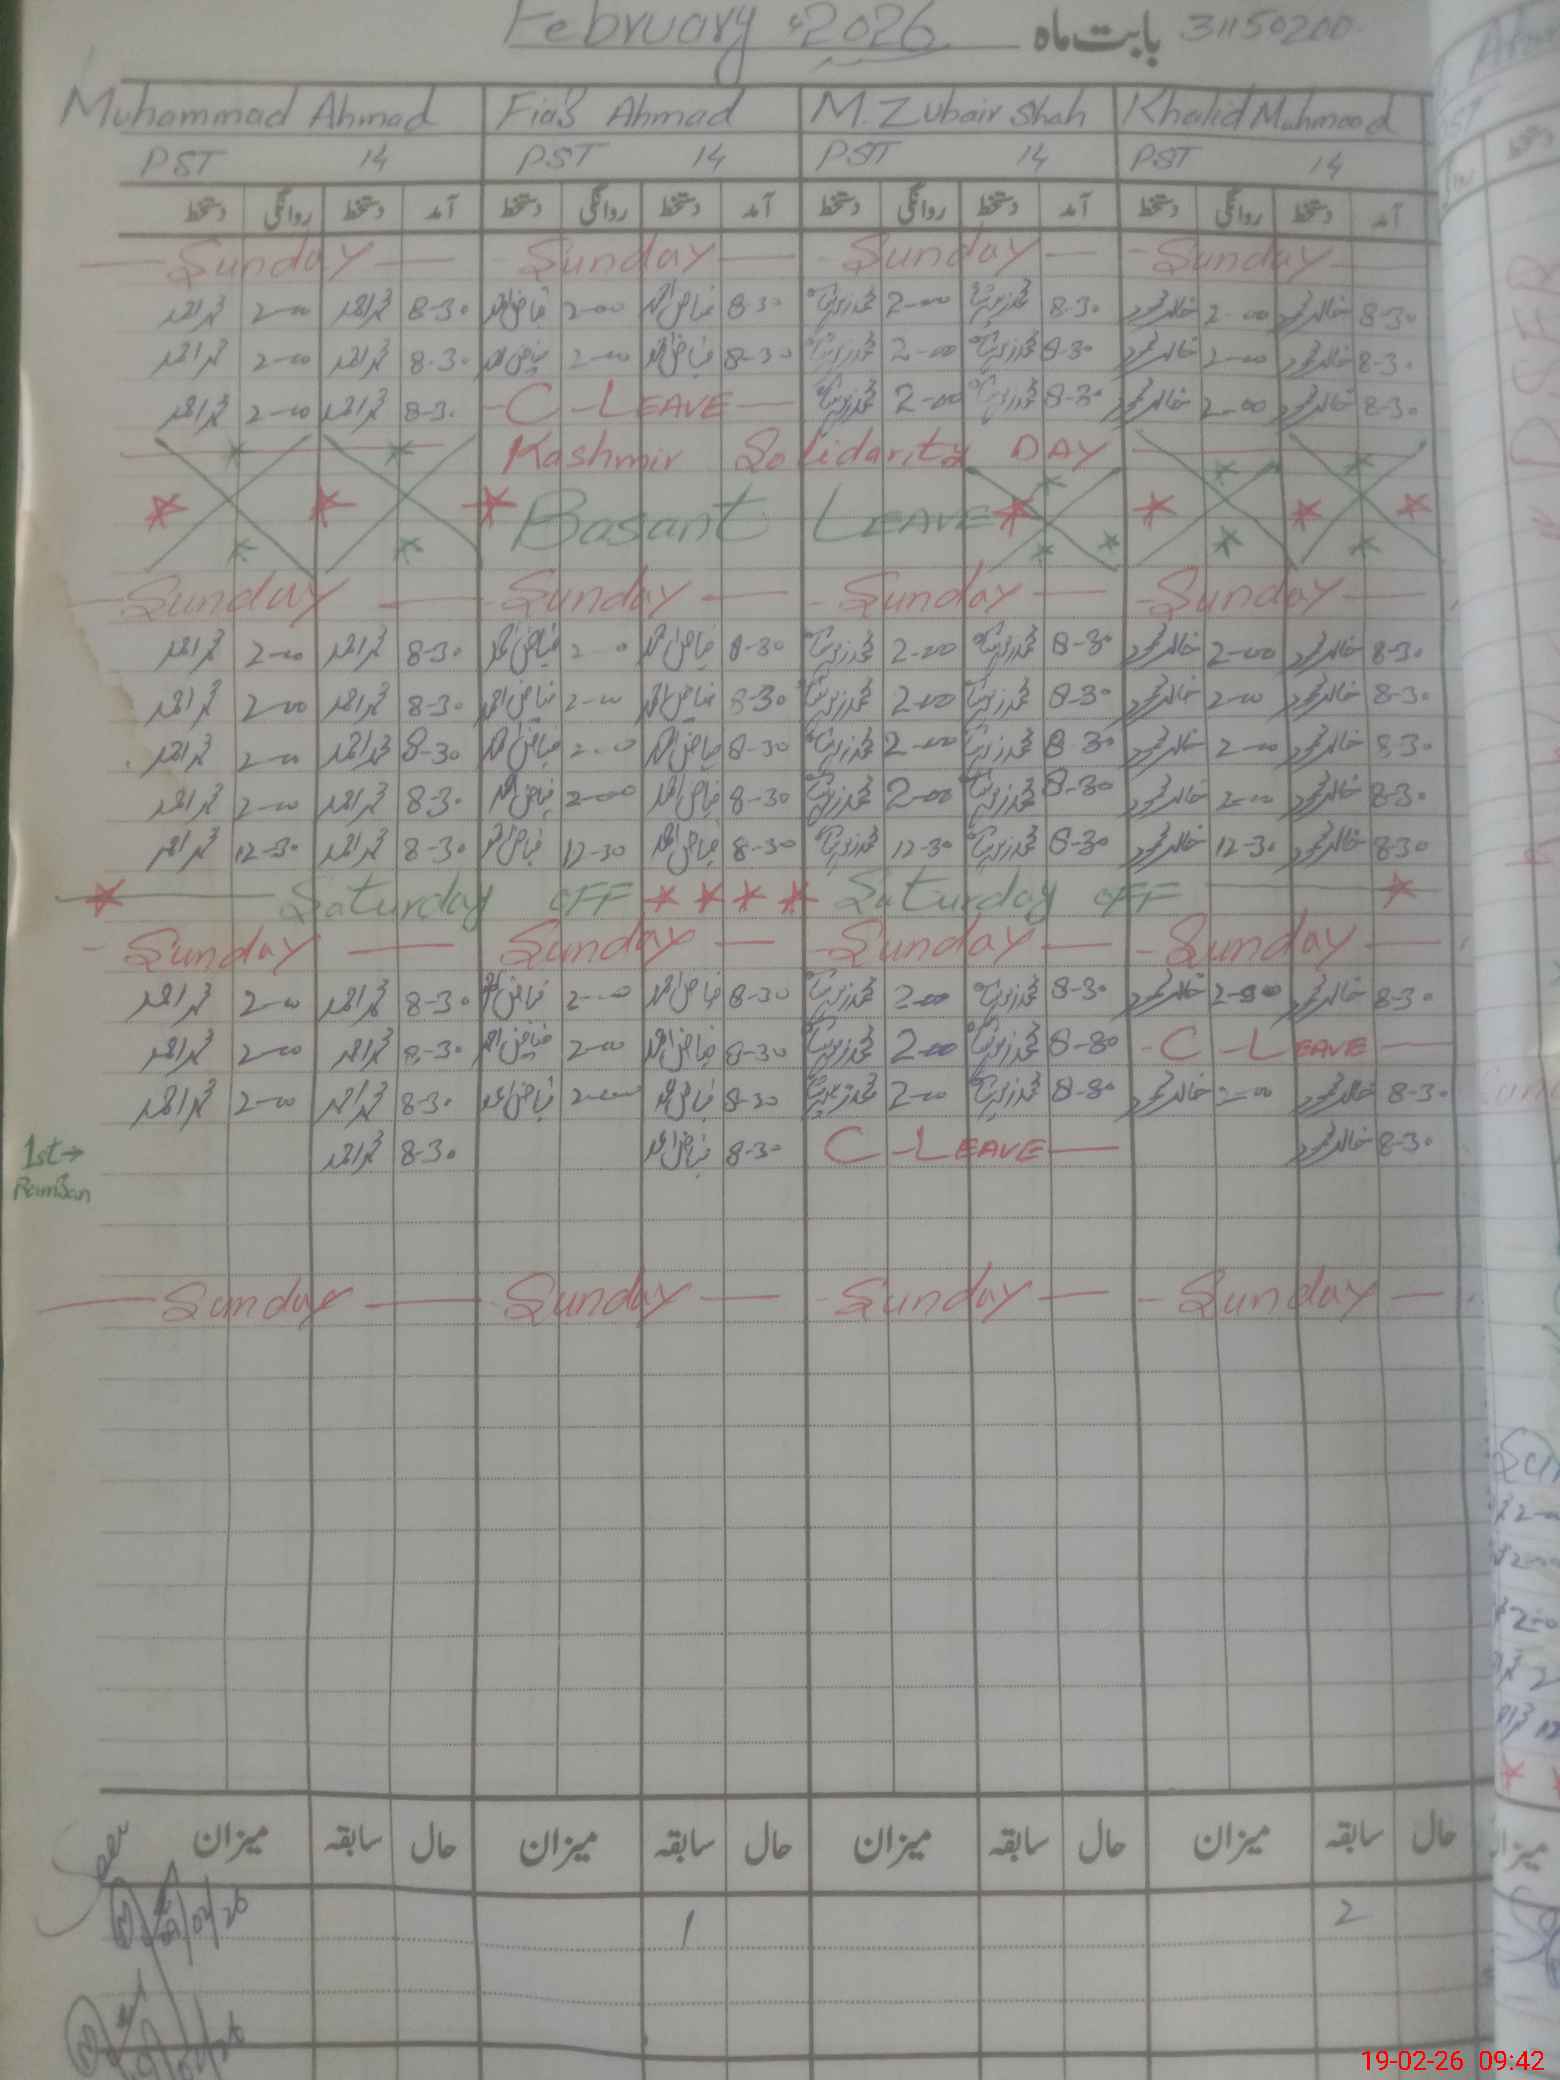 February 2026 بابت ماہ 31150200
Muhammad Ahmad Fiaz Ahmad M. Zubair Shah Khalid Mahmood
PST 14 PST 14 PST 14 PST 14
دستخط روانگی دستخط آمد دستخط روانگی دستخط آمد دستخط روانگی دستخط آمد دستخط روانگی دستخط آمد
Sunday Sunday Sunday Sunday
محمد احمد 2-00 محمد احمد 8-30 فیاض احمد 2-00 فیاض احمد 8-30 محمد زبیر شاہ 2-00 محمد زبیر شاہ 8-30 خالد محمود 2-00 خالد محمود 8-30
محمد احمد 2-00 محمد احمد 8-30 فیاض احمد 2-00 فیاض احمد 8-30 محمد زبیر شاہ 2-00 محمد زبیر شاہ 8-30 خالد محمود 2-00 خالد محمود 8-30
محمد احمد 2-00 محمد احمد 8-30 C-LEAVE محمد زبیر شاہ 2-00 محمد زبیر شاہ 8-30 خالد محمود 2-00 خالد محمود 8-30
Kashmir Solidarity DAY
Basant LEAVE
Sunday Sunday Sunday Sunday
محمد احمد 2-00 محمد احمد 8-30 فیاض احمد 2-00 فیاض احمد 8-30 محمد زبیر شاہ 2-00 محمد زبیر شاہ 8-30 خالد محمود 2-00 خالد محمود 8-30
محمد احمد 2-00 محمد احمد 8-30 فیاض احمد 2-00 فیاض احمد 8-30 محمد زبیر شاہ 2-00 محمد زبیر شاہ 8-30 خالد محمود 2-00 خالد محمود 8-30
محمد احمد 2-00 محمد احمد 8-30 فیاض احمد 2-00 فیاض احمد 8-30 محمد زبیر شاہ 2-00 محمد زبیر شاہ 8-30 خالد محمود 2-00 خالد محمود 8-30
محمد احمد 2-00 محمد احمد 8-30 فیاض احمد 2-00 فیاض احمد 8-30 محمد زبیر شاہ 2-00 محمد زبیر شاہ 8-30 خالد محمود 2-00 خالد محمود 8-30
محمد احمد 12-30 محمد احمد 8-30 فیاض احمد 12-30 فیاض احمد 8-30 محمد زبیر شاہ 12-30 محمد زبیر شاہ 8-30 خالد محمود 12-30 خالد محمود 8-30
Saturday OFF Saturday OFF
Sunday Sunday Sunday Sunday
محمد احمد 2-00 محمد احمد 8-30 فیاض احمد 2-00 فیاض احمد 8-30 محمد زبیر شاہ 2-00 محمد زبیر شاہ 8-30 خالد محمود 2-00 خالد محمود 8-30
محمد احمد 2-00 محمد احمد 8-30 فیاض احمد 2-00 فیاض احمد 8-30 محمد زبیر شاہ 2-00 محمد زبیر شاہ 8-30 C-LEAVE
محمد احمد 2-00 محمد احمد 8-30 فیاض احمد 2-00 فیاض احمد 8-30 محمد زبیر شاہ 2-00 محمد زبیر شاہ 8-30 خالد محمود 2-00 خالد محمود 8-30
1st→ محمد احمد 8-30 فیاض احمد 8-30 C-LEAVE خالد محمود 8-30
Ramzan
Sunday Sunday Sunday Sunday
میزان سابقہ حال میزان سابقہ حال میزان سابقہ حال میزان سابقہ حال
Seen
1 2
19-02-26 09:42